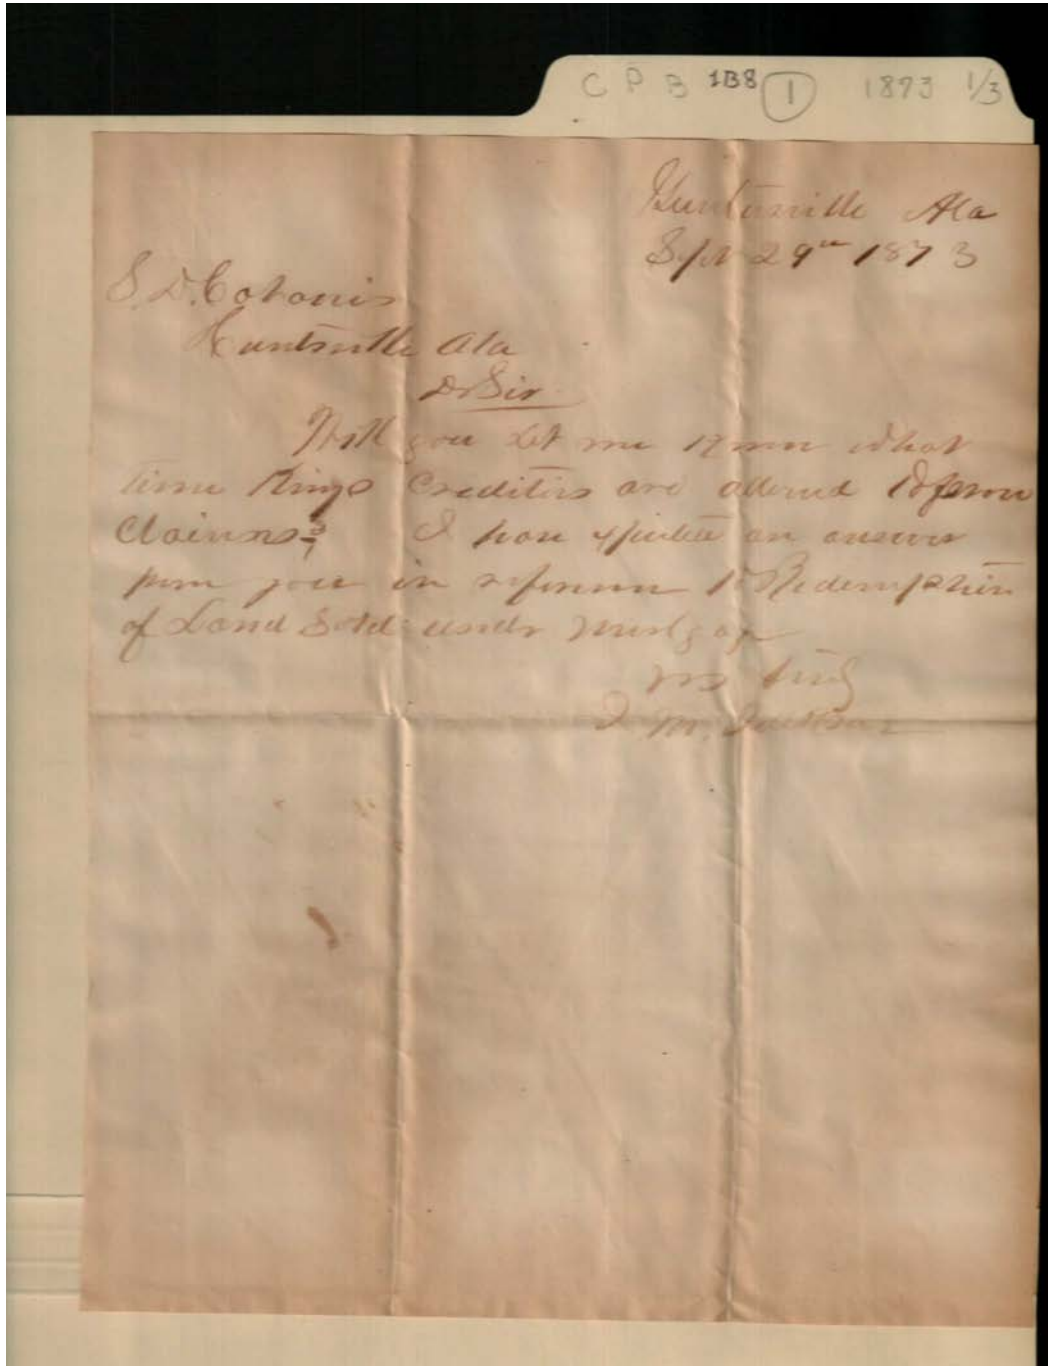 C P B 1B8 1 1873 1/3
Huntsville Ala
Sept 29th 1873
S. D. Cabaniss
Huntsville Ala
Dr Sir
Will you let me know what
time Kings Creditors are allowed to prove
Claims? I have expected an answer
from you in reference to Redemption
of Land Sold under Mortgage
J. M. Jackson